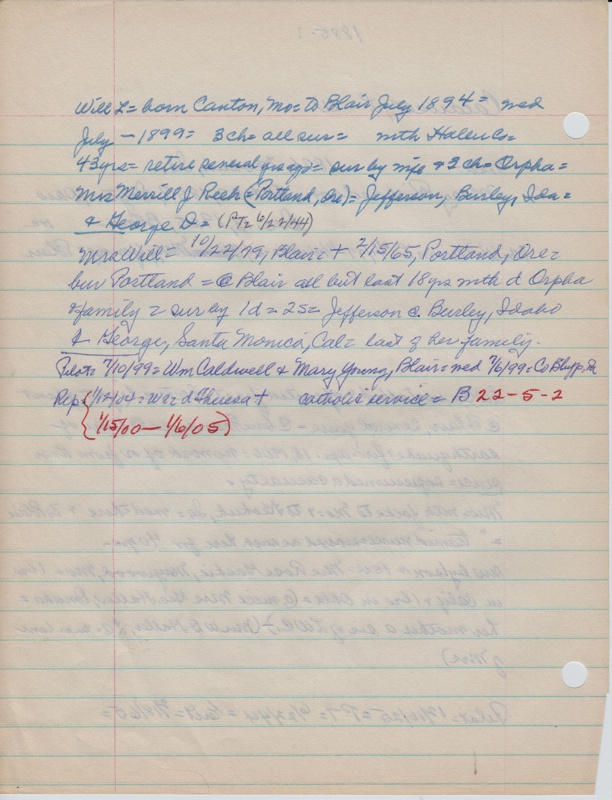 Will L = born Canton, Mo = to Blair July 1894 = med
July - 1899 = 3 ch = all sur = mth Haller Co =
43 yrs = retire several yrs ago = sur by wife & 3 ch = Orpha =
Mrs Merrill J Reeh (= Portland, Ore) = Jefferson, Burley, Ida =
& George D = (PT = 6/22/44)
Mrs Will = 10/22/79, Blair = + 2/15/65, Portland, Ore =
bur Portland = @ Blair all but last 18 yrs mth d Orpha
& family = sur by 1 d = 2 s = Jefferson @ Burley, Idaho
& George, Santa Monica, Cal = last of her family.
Pilot = 7/10/99 = Wm Caldwell & Mary Young, Blair = med 7/6/99 = Co Bluffs, Ia
Rep 1/12/04 = W = d Theresa + Catholic service = B 22-5-2
(1/15/00 - 1/6/05)